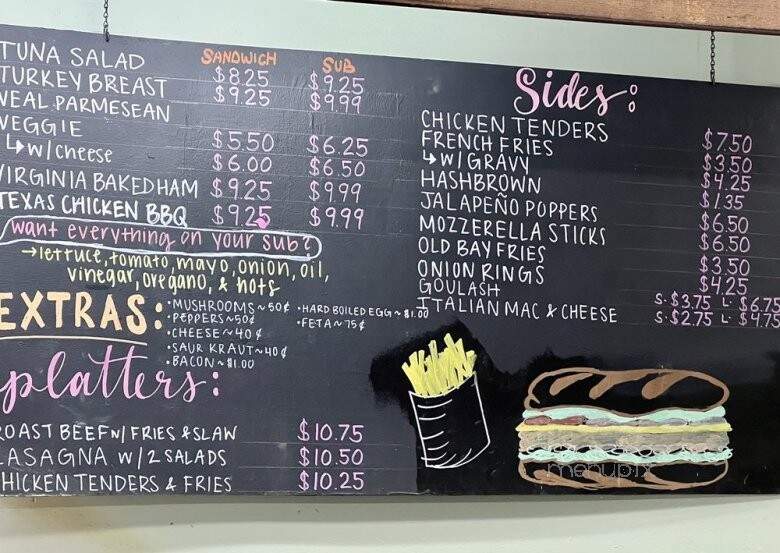 SANDWICH SUB
TUNA SALAD $8.25 $9.25
TURKEY BREAST $9.25 $9.99
VEAL PARMESEAN
VEGGIE $5.50 $6.25
↳ w/cheese $6.00 $6.50
VIRGINIA BAKED HAM $9.25 $9.99
TEXAS CHICKEN BBQ $9.25 $9.99
want everything on your sub?
→ lettuce, tomato, mayo, onion, oil,
vinegar, oregano, & hots
EXTRAS:
• MUSHROOMS ~ 50¢
• PEPPERS ~ 50¢
• CHEESE ~ 40¢
• SAUR KRAUT ~ 40¢
• BACON ~ $1.00
• HARD BOILED EGG ~ $1.00
• FETA ~ 75¢
platters:
ROAST BEEF w/ FRIES & SLAW $10.75
LASAGNA w/ 2 SALADS $10.50
CHICKEN TENDERS & FRIES $10.25
Sides:
CHICKEN TENDERS $7.50
FRENCH FRIES $3.50
↳ W/ GRAVY $4.25
HASHBROWN $1.35
JALAPEÑO POPPERS $6.50
MOZZERELLA STICKS $6.50
OLD BAY FRIES $3.50
ONION RINGS $4.25
GOULASH S. $3.75 L. $6.75
ITALIAN MAC & CHEESE S. $2.75 L. $4.75
menupix